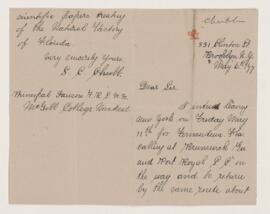 scientific papers treating
of the Natural History
of Florida.
Very sincerely Yours
S. C. Chubb
Principal Dawson F.R.S.
McGill College Montreal
Chubb
331 Clinton St
Brooklyn N.Y.
May 6th /77
Dear Sir
I intend leaving
New York on Friday May
11th for Fernandina Fla
calling at Brunswick Ga
and Port Royal S C on
the way and to return
by the same route about